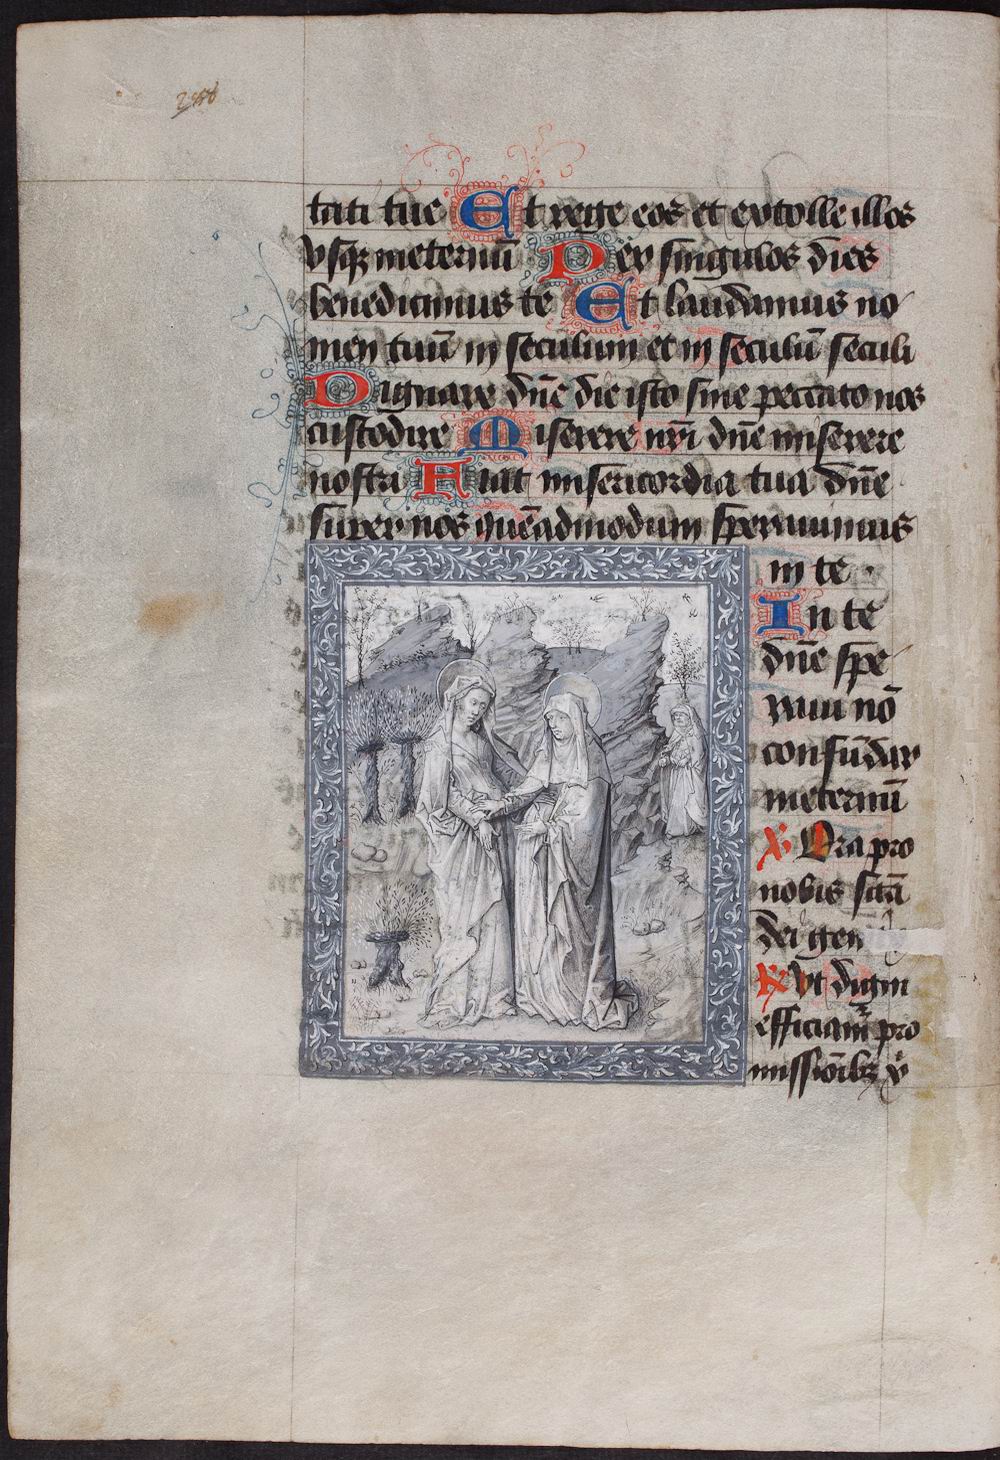 tati tue Et rege eos et extolle illos
vsqꝫ in eternū Per singulos dies
benedicimus te Et laudamus no
men tuū in seculum et in seculū seculi
Dignare dn̄e die isto sine peccato nos
custodire Miserere nr̄i dn̄e miserere
nostri Fiat misericordia tua dn̄e
super nos quēadmodum sperauimus
in te
In te
dn̄e spe
raui nō
confūdar
in eternū
℣ Ora pro
nobis sctā
dei gen
℟ Vt digni
efficiam̄ pro
missiōibꝫ